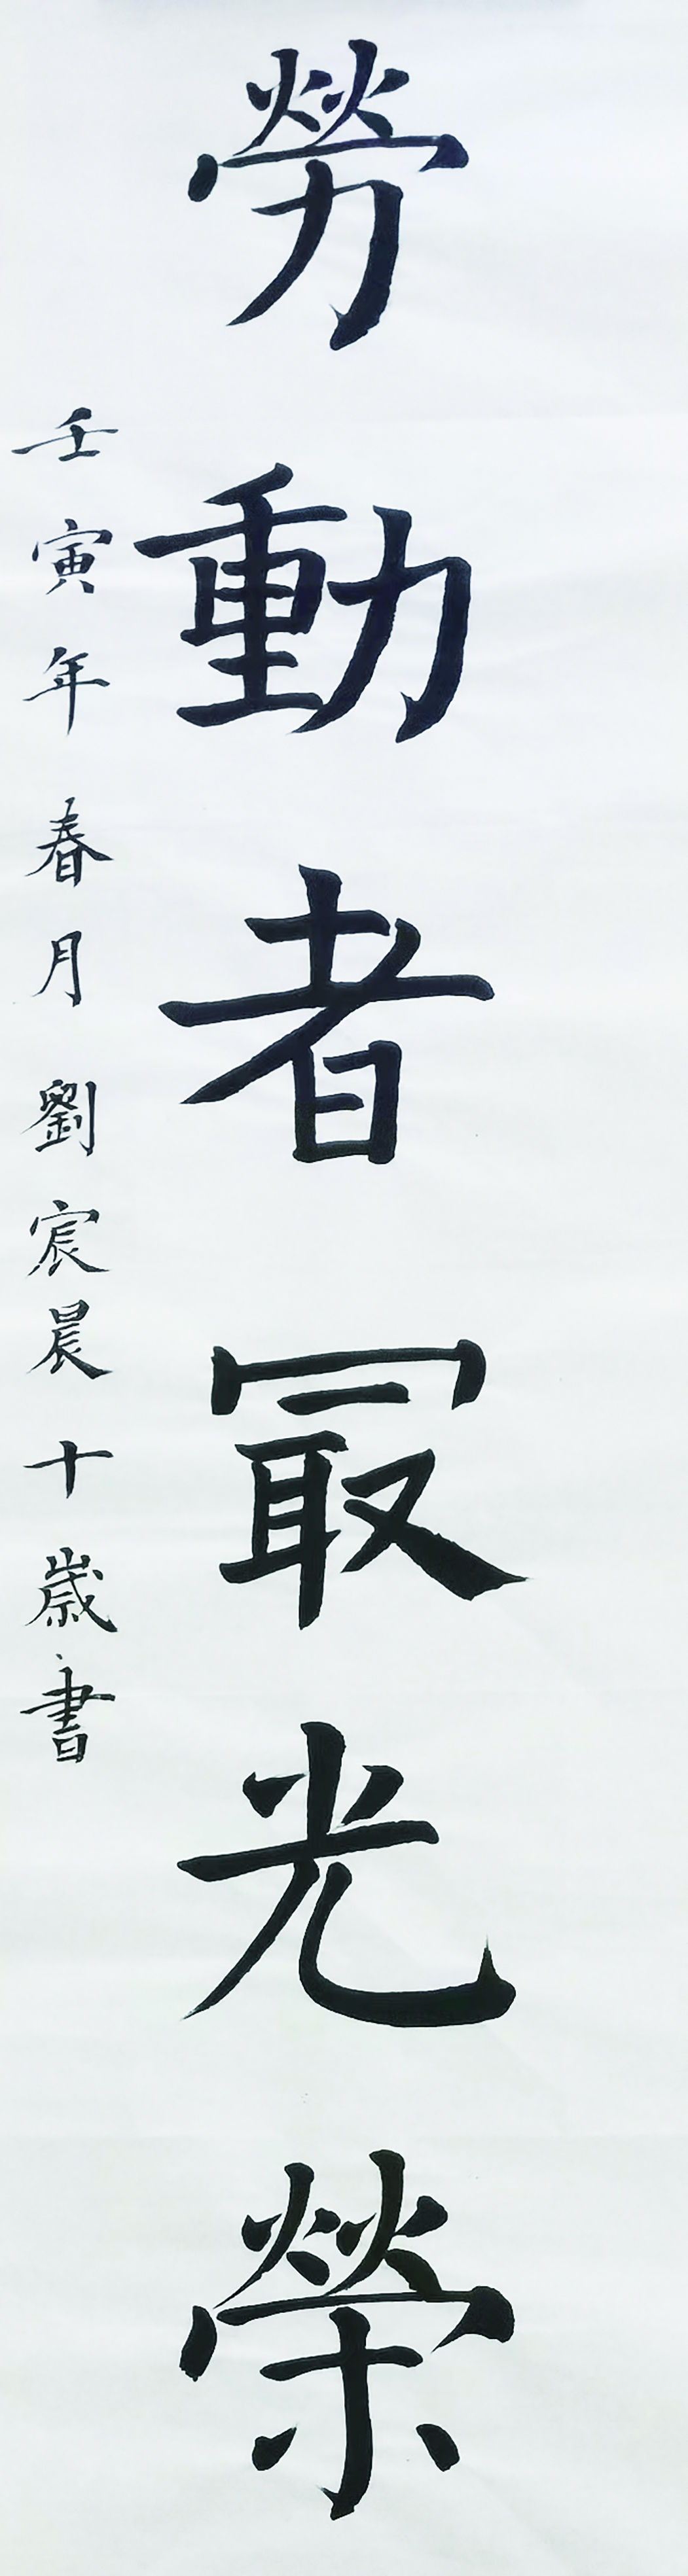 勞動者冣光榮
壬寅年春月劉宸晨十歲書